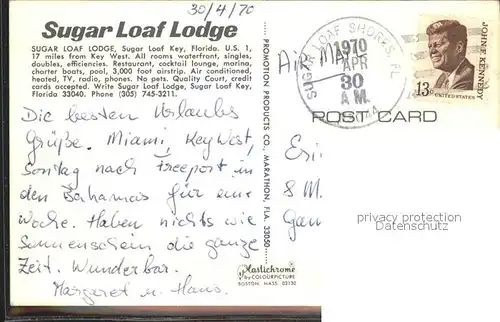 30/4/70
Sugar Loaf Lodge
SUGAR LOAF LODGE, Sugar Loaf Key, Florida. U.S. 1,
17 miles from Key West. All rooms waterfront, singles,
doubles, efficiencies. Restaurant, cocktail lounge, marina,
charter boats, pool, 3,000 foot airstrip. Air conditioned,
heated, TV, radio, phones. No pets. Quality Court, credit
cards accepted. Write Sugar Loaf Lodge, Sugar Loaf Key,
Florida 33040. Phone (305) 745-3211.
Die besten Urlaubs
Grüße. Miami, Key West,
Sonntag nach Freeport in
den Bahamas für eine
Woche. Haben nichts wie
Sonnenschein die ganze
Zeit. Wunderbar.
Margaret u. Hans.
PROMOTION PRODUCTS CO., MARATHON, FLA. 33050
Plastichrome
by COLOURPICTURE
BOSTON, MASS. 02130
Air M
SUGAR LOAF SHORES, FL
1970
APR
30
A.M.
JOHN F. KENNEDY
13c
UNITED STATES
POST CARD
Eri
8 M
privacy protection
Watermark DonsWelt